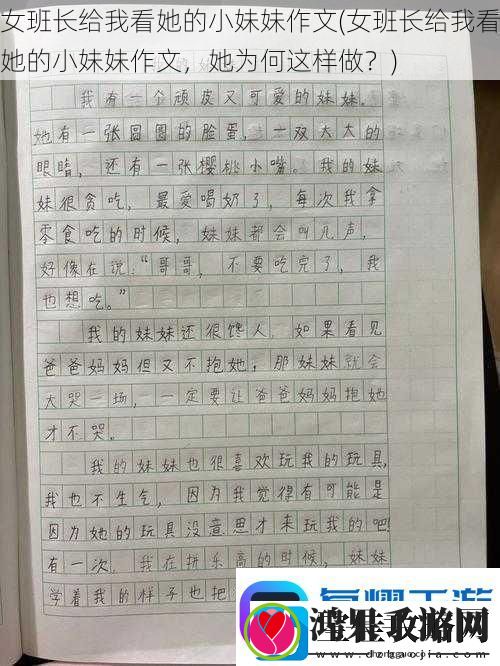 女班长给我看她的小妹妹作文(女班长给我看
她的小妹妹作文，她为何这样做？)
我有一个顽皮又可爱的妹妹.
她有一张圆圆的脸蛋,一双大大的
眼睛，还有一张樱桃小嘴。我的妹
妹很贪吃，最爱喝奶了，每次我拿
零食吃的时候，妹妹都会叫几声，
好像在说:“哥哥，不要吃完了，我
也想吃。”
我的妹妹还很馋人，如果看见
爸爸妈妈但又不抱她，那妹妹就会
大哭一场，一定要让爸爸妈妈抱她
才不哭。
我的妹妹也很喜欢玩我的玩具,
我也不生气，因为我觉得有可能是
因为她的玩具没意思才来玩我的吧
有一次，我在拼乐高的时候，妹妹
学着我的样子也把
鸿雅攻略网